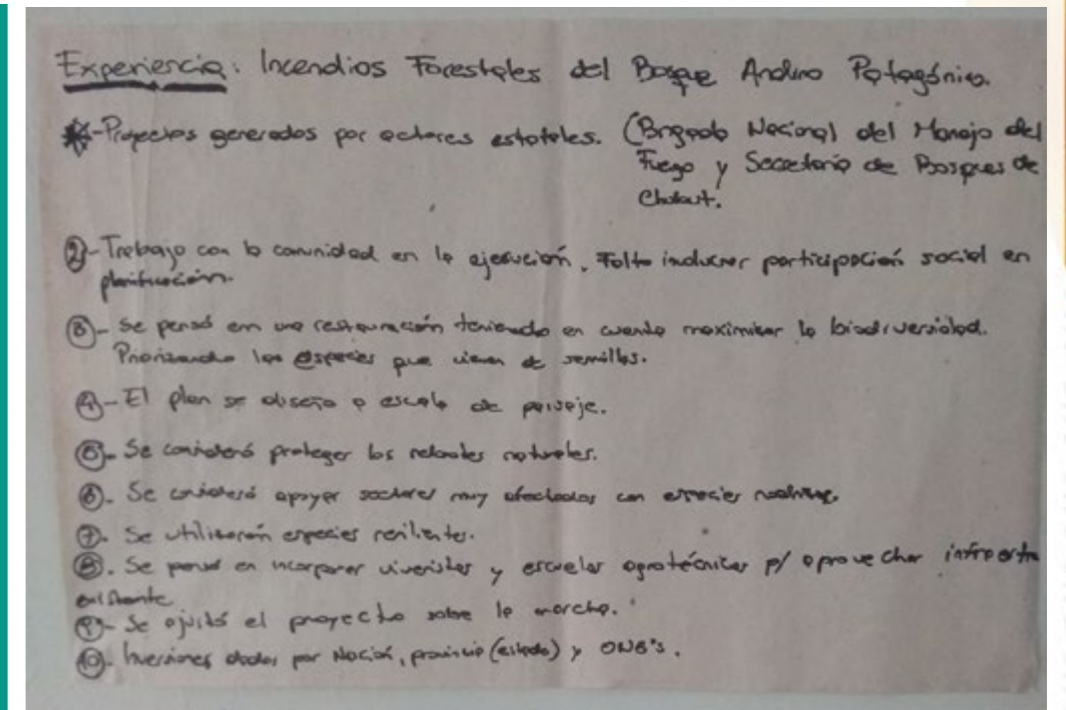 Experiencia: Incendios Forestales del Bosque Andino Patagónico.
- Proyectos generados por actores estatales. (Brigada Nacional del Manejo del
Fuego y Secretaría de Bosques de
Chubut.
2 - Trabajo con la comunidad en la ejecución. Falta involucrar participación social en
planificación.
3 - Se pensó en una restauración teniendo en cuenta maximizar la biodiversidad.
Priorizando las especies que vienen de semillas.
4 - El plan se diseño a escala de paisaje.
5 - Se consideró proteger los rebrotes naturales.
6 - Se consideró apoyar sectores muy afectados con especies nativas.
7 - Se utilizaron especies resilientes.
8 - Se pensó en incorporar viveristas y escuelas agrotécnicas p/ aprovechar
existente
9 - Se ajustó el proyecto sobre la marcha.
10 - Inversiones dadas por Nación, provincia (estado) y ONG's.